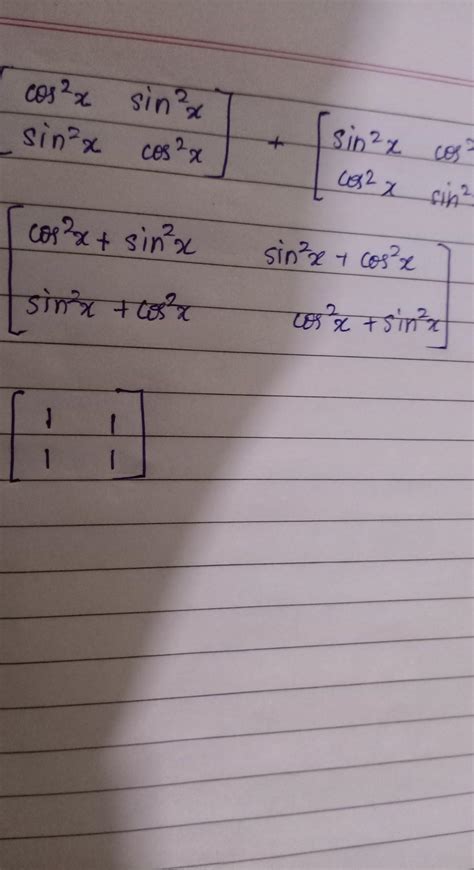 [cos²x sin²x] + [sin²x cos²
sin²x cos²x] cos²x sin²
[cos²x + sin²x sin²x + cos²x
sin²x + cos²x cos²x + sin²x]
[1 1
1 1]